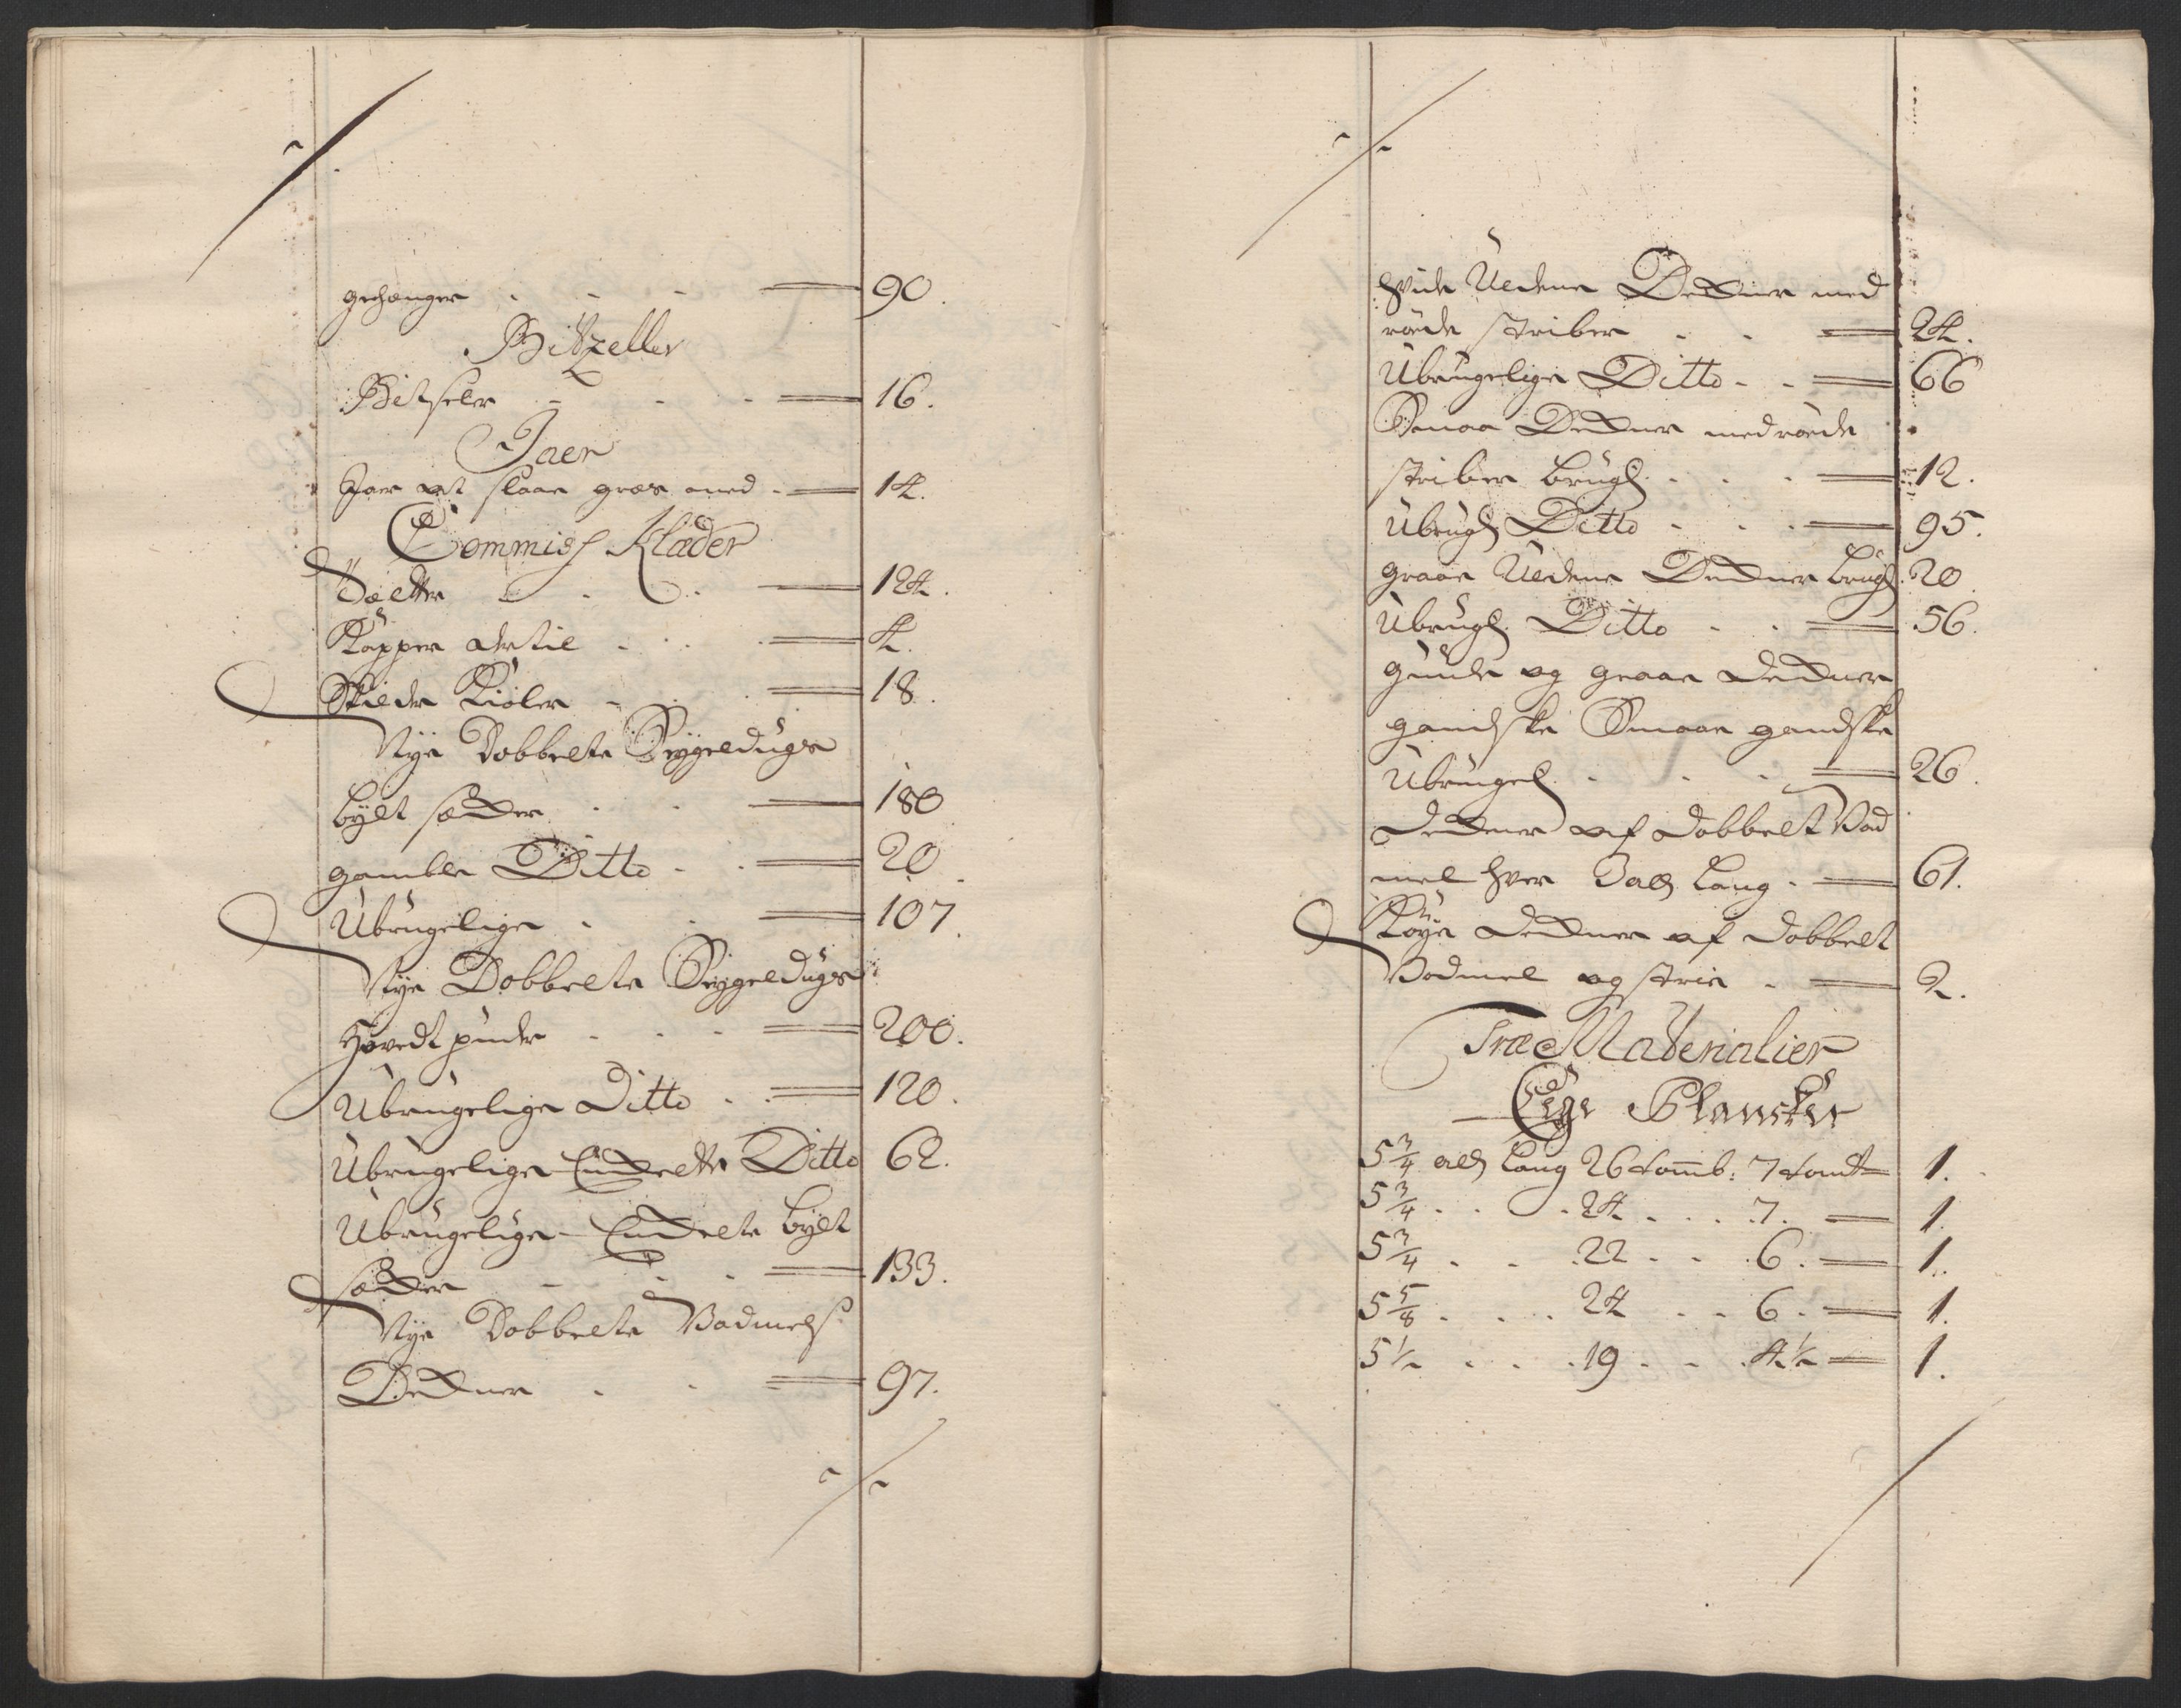 gehænger - - - 90.
Bitzeller
Bitseler - - - 16.
Jaer
Jaer at slaae græs med - 14.
Commiss Klæder
124.
Kapper dertil - - 4.
Skilder Kioler - - 18.
Nye Dobbelte Seygeldugs
bylt sækker - - 180
gamble Ditto - - 20
Ubrugelige - - 107.
Nye Dobbelte Seygeldugs
Hovedt puder - - - 200.
Ubrugelige Ditto - - 120.
Ubrugelige Enckelte Ditto 62.
Ubrugelige Enckelte bylt
sækker - - - 133.
Nye Dobbelte Vadmels
Dekner - - 97.
hvide Uldene Dekner med
røde striber - - 24.
Ubrugelige Ditto - - 66
Smaa Dekner med røde
striber brugl. - - - 12.
Ubrugl. Ditto - - - 95.
graae Uldene Dekner brugl. 20
Ubrugl. Ditto - - 56.
guule og graae dekner
gandske Smaae gandske
Ubrugel. - - - 26.
Dekner af dobbelt Vad
mel hver 3 all lang - 61.
Køye dekner af dobbelt
Vadmel og strie - 2.
Træ Materialier
Eege Plancker
5 3/4 all lang 26 tomb: 7 tomt 1.
5 3/4 . . . 24 . . . 7. 1
5 3/4 . . . 22 . . 6. 1.
5 5/8 . . . 24 . . 6. 1.
5 1/2 . . . 19 . . . 4 1/2 1.